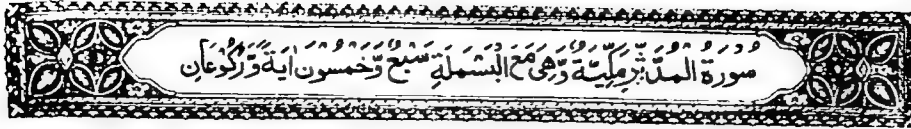 سُورَةُ الْمُدَّثِّرِ مَكِّيَّةٌ وَّهِىَ مَعَ الْبَسْمَلَةِ سَبْعٌ وَّخَمْسُوْنَ اٰيَةً وَّرُكُوْعَانِ